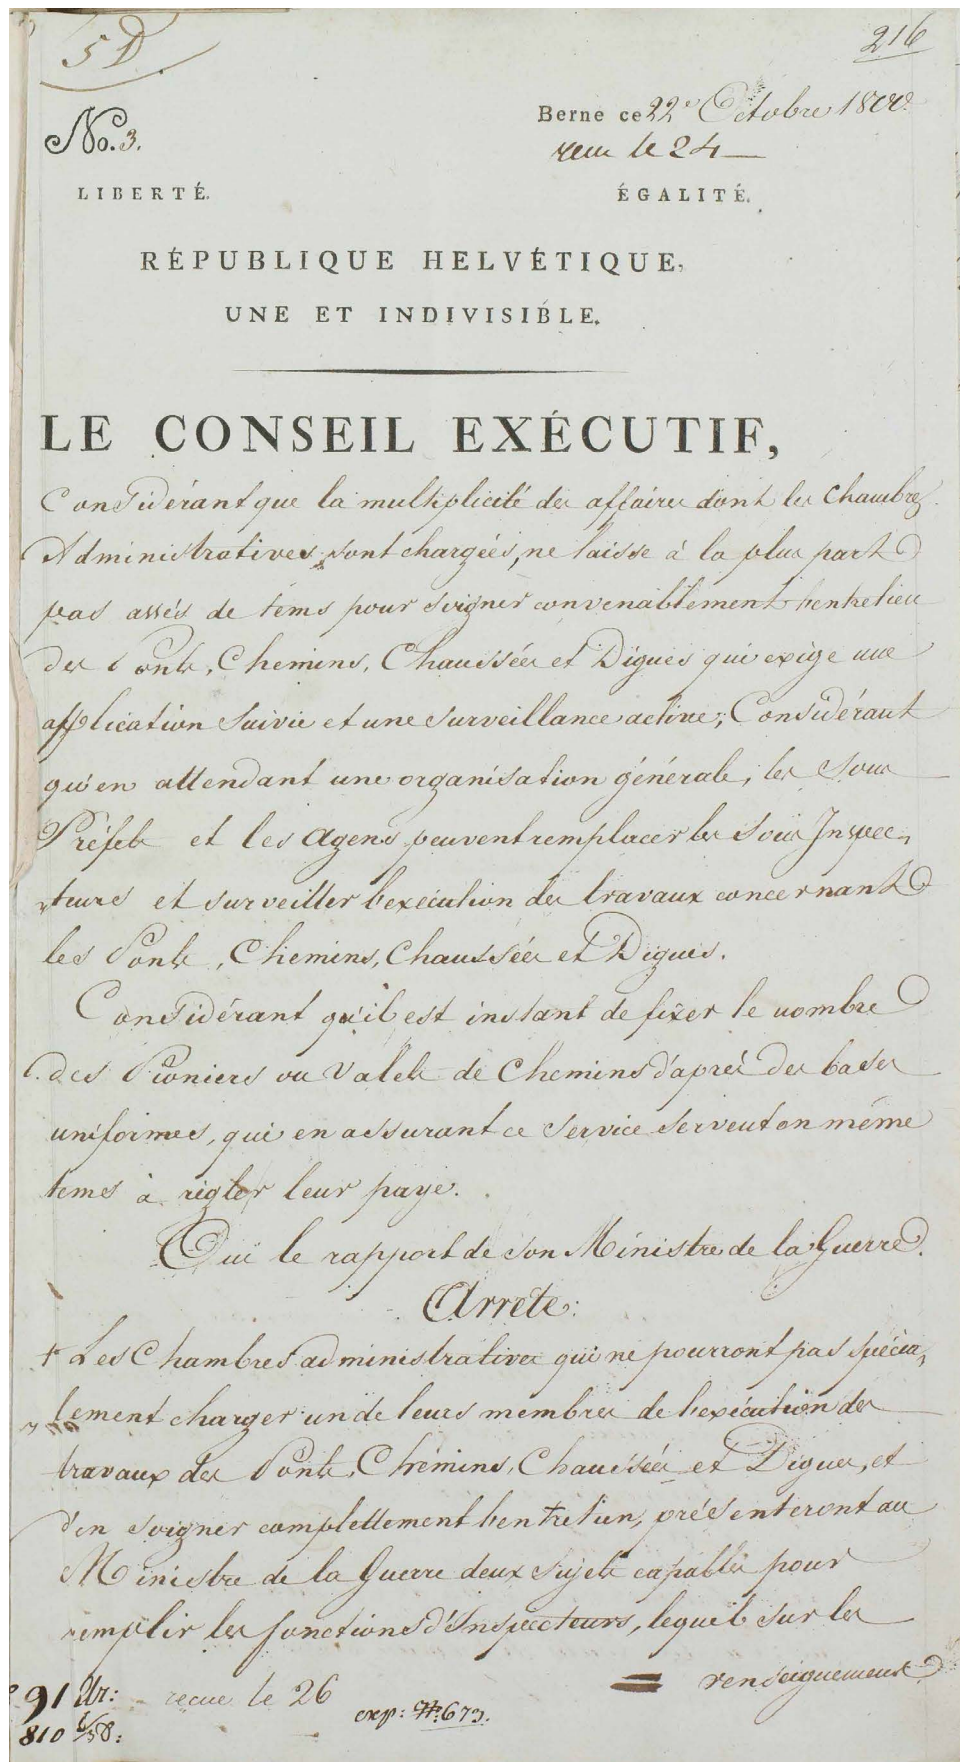 5 D.
216
Berne ce 22e Octobre 1800.
No. 3.
reçu le 24
LIBERTÉ. ÉGALITÉ.
RÉPUBLIQUE HELVÉTIQUE,
UNE ET INDIVISIBLE.
LE CONSEIL EXÉCUTIF,
Considérant que la multiplicité des affaires dont les Chambres
Administratives sont chargées, ne laisse à la plus part
pas assés de tems pour soigner convenablement l'entretien
des Ponts, Chemins, Chaussées et Digues qui exige une
application suivie et une surveillance active; Considérant
qu'en attendant une organisation générale, les sous
Préfets et les Agens peuvent remplacer les sous Inspec-
teurs et surveiller l'exécution des travaux concernant
les Ponts, Chemins, Chaussées et Digues.
Considérant qu'il est instant de fixer le nombre
des Pioniers ou Valets de Chemins d'après des bases
uniformes, qui en assurant ce service servent en même
tems à règler leur paye.
Ouï le rapport de son Ministre de la Guerre.
Arrete:
1 Les Chambres administratives qui ne pourront pas spécia-
lement charger un de leurs membres de l'exécution des
travaux des Ponts, Chémins, Chaussées et Digues, et
d'en soigner complettement l'entretien, présenteront au
Ministre de la Guerre deux sujets capables pour
remplir les fonctions d'Inspecteurs, lequel sur les
= renseignemens
91 recue le 26
exp: № 673.
810